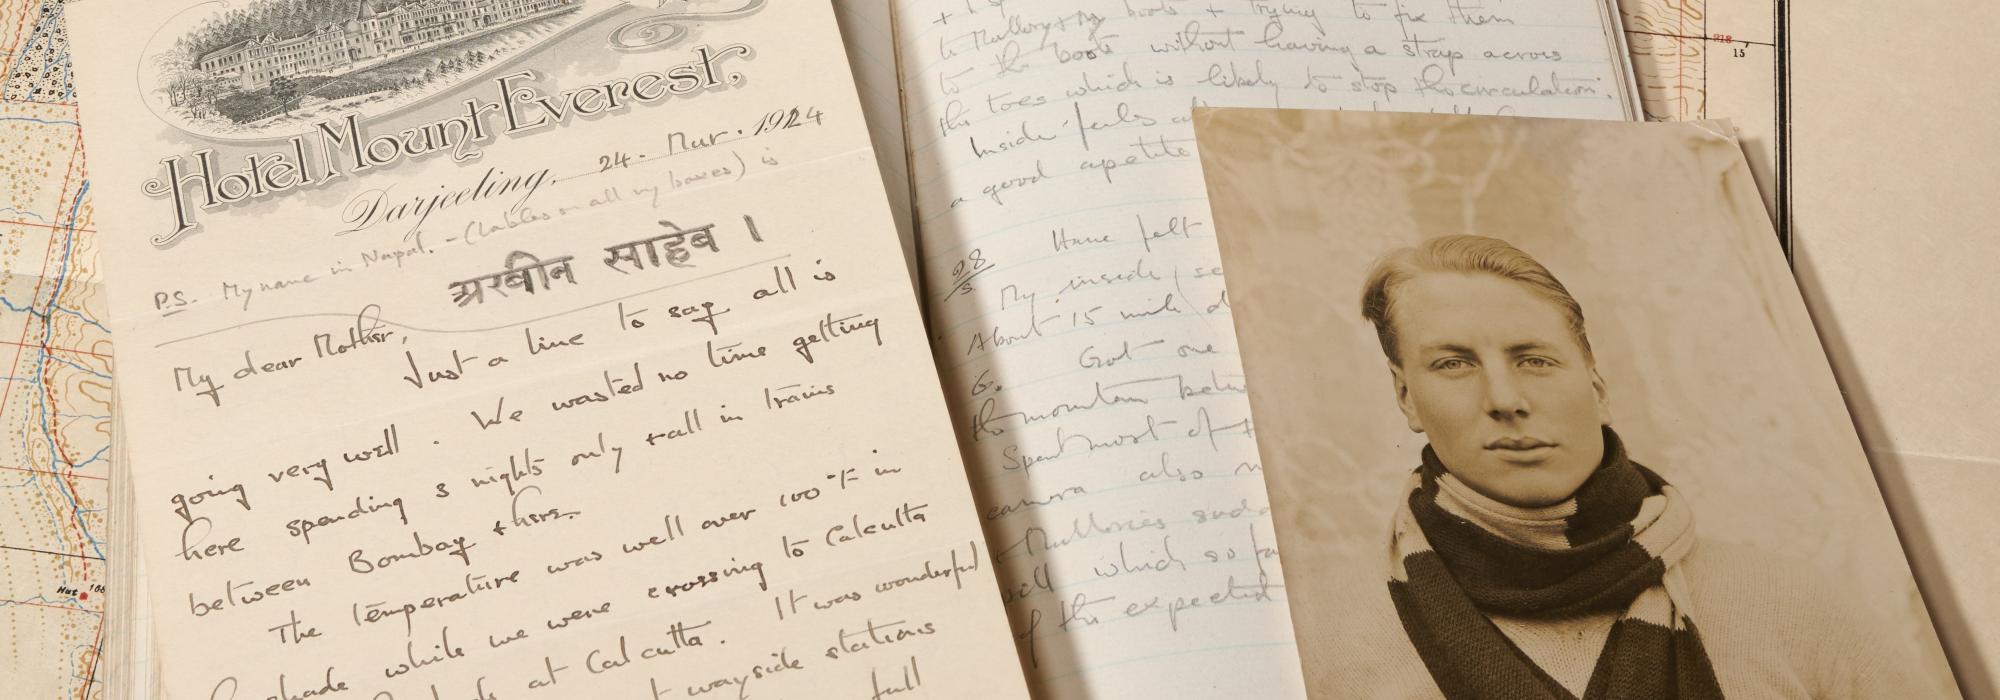 Hotel Mount Everest,
Darjeeling, 24. Mar. 1924
P.S. My name in Nepal. - (lables on all my boxes) is
अरबीन साहेब ।
My dear Mother,
Just a line to say all is
going very well. We wasted no time getting
here spending 3 nights only & all in trains
between Bombay & here.
The temperature was well over 100°F in
shade while we were crossing to Calcutta
at Calcutta. It was wonderful
wayside stations
full
to Mallory & my boots & trying to fix them
to the boots without having a strap across
the toes which is likely to stop the circulation.
Inside feels
a good apetite
28/5. Have felt
My inside
About 15 mile
6. Got one
the mountain
Spent most of
camera also
& Mallories
will which so
of the expected
218
15'
Hut